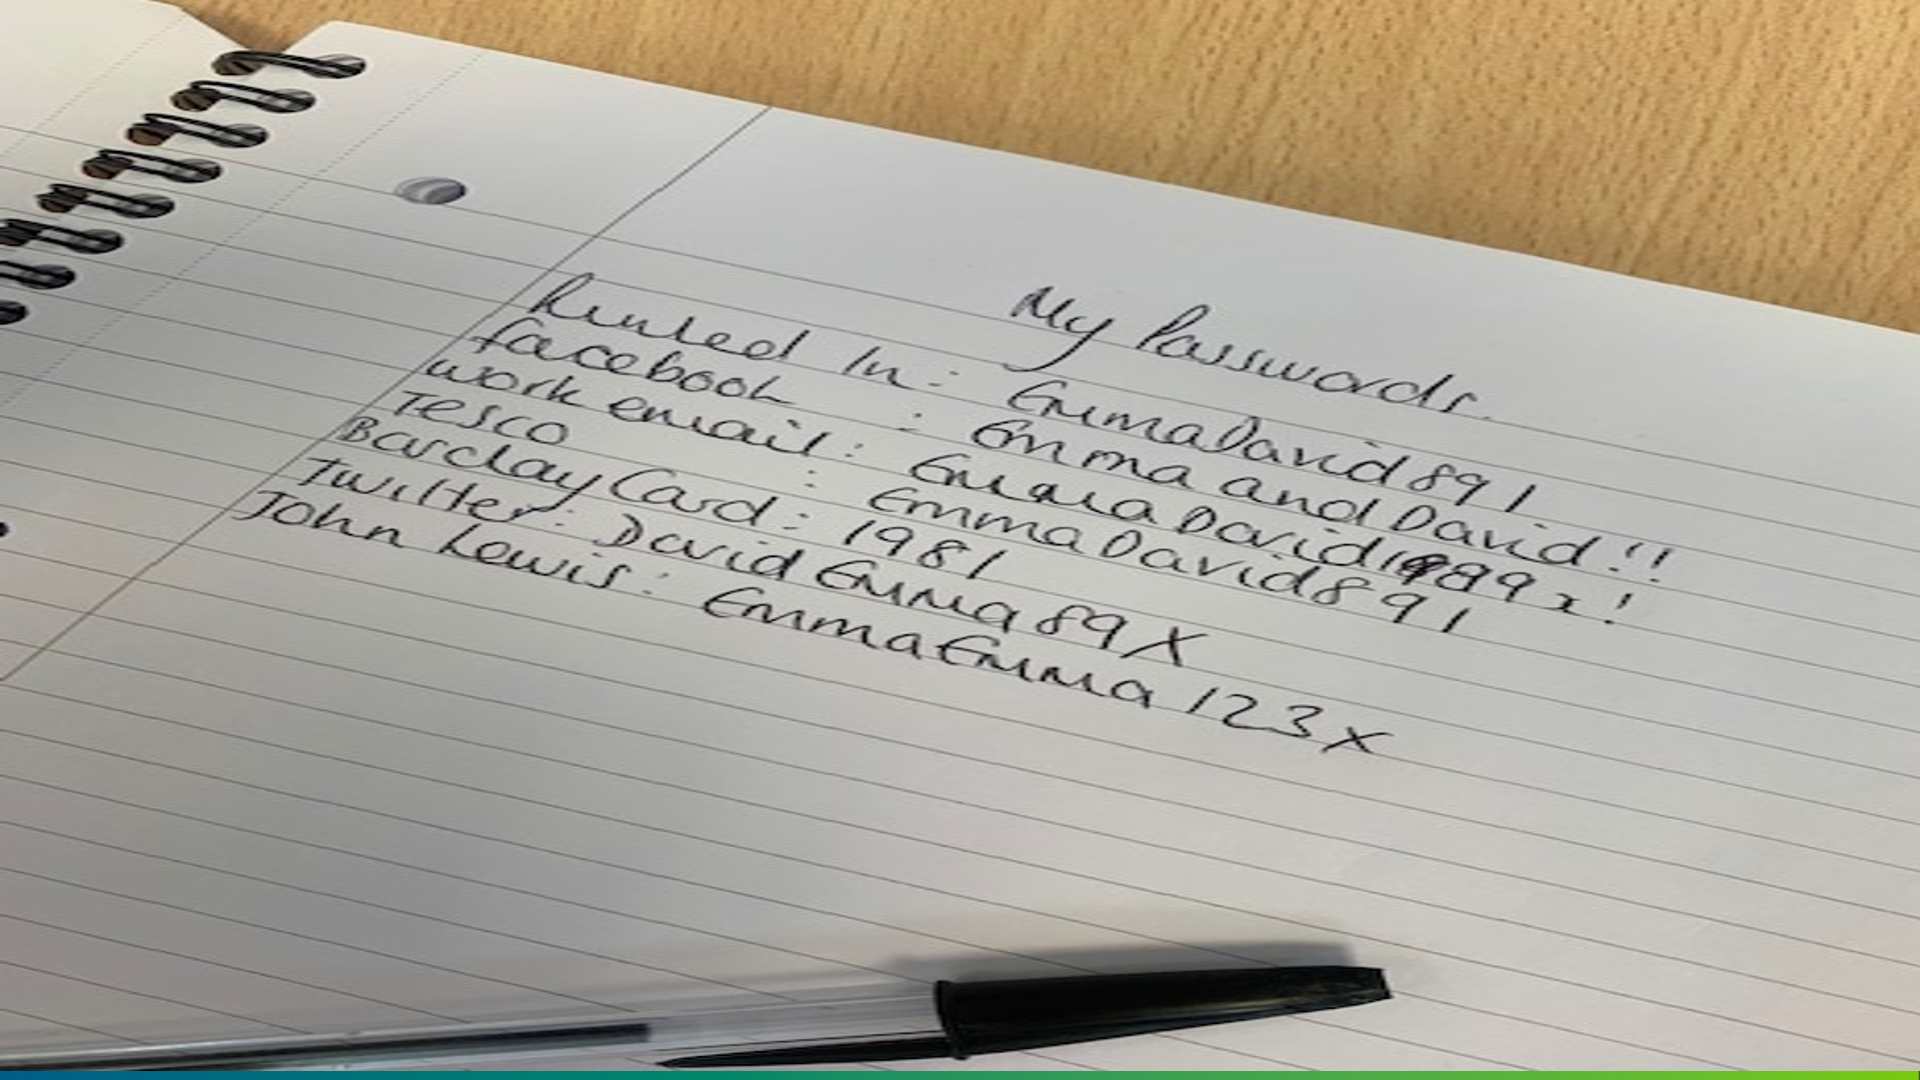 My Passwords.
Linked In: EmmaDavid891
facebook : Emma and David!!
work email: EmmaDavid1989x!
Tesco : EmmaDavid891
Barclay Card: 1981
Twitter: DavidEmma89X
John Lewis: EmmaEmma123x